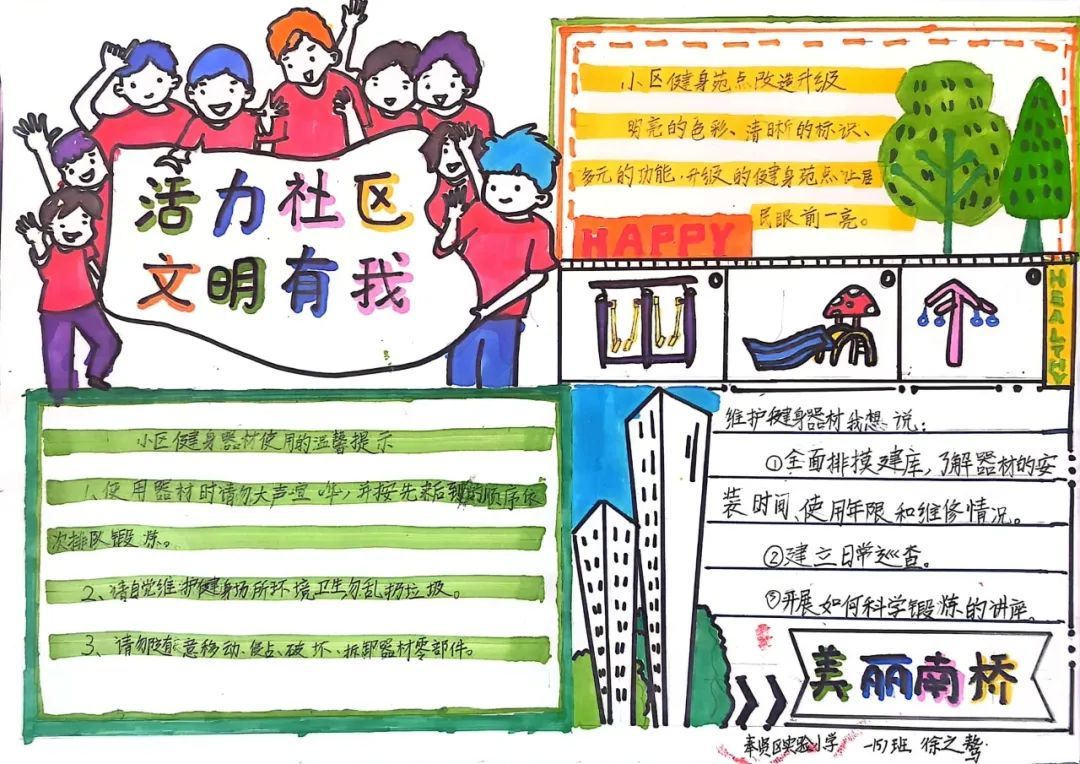 活力社区
文明有我
小区健身苑点改造升级
明亮的色彩、清晰的标识、
多元的功能,升级的健身苑点让居
民眼前一亮。
HAPPY
HEALTHY
小区健身器材使用的温馨提示
1、使用器材时请勿大声喧哗,并按先来后到的顺序依
次排队锻炼。
2、请自觉维护健身场所环境卫生,勿乱扔垃圾。
3、请勿随意移动、侵占、破坏、拆卸器材零部件。
维护健身器材我想说:
①全面排摸建库,了解器材的安
装时间、使用年限和维修情况。
②建立日常巡查。
③开展如何科学锻炼的讲座。
美丽南桥
奉贤区实验小学 一(5)班 徐之骜